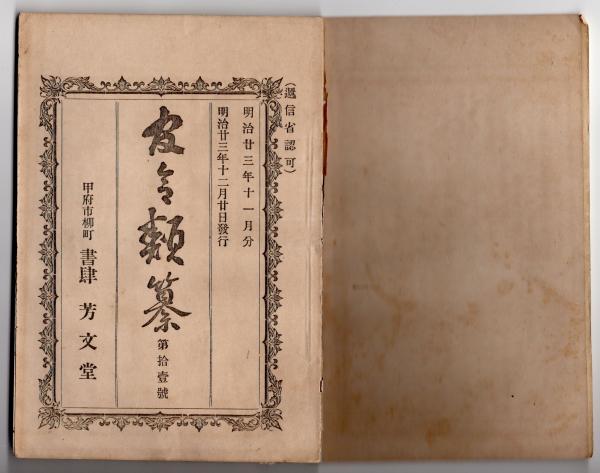 (遞信省認可)
明治廿三年十一月分
明治廿三年十二月廿日發行
官令類纂 第拾壹號
甲府市柳町 書肆 芳文堂